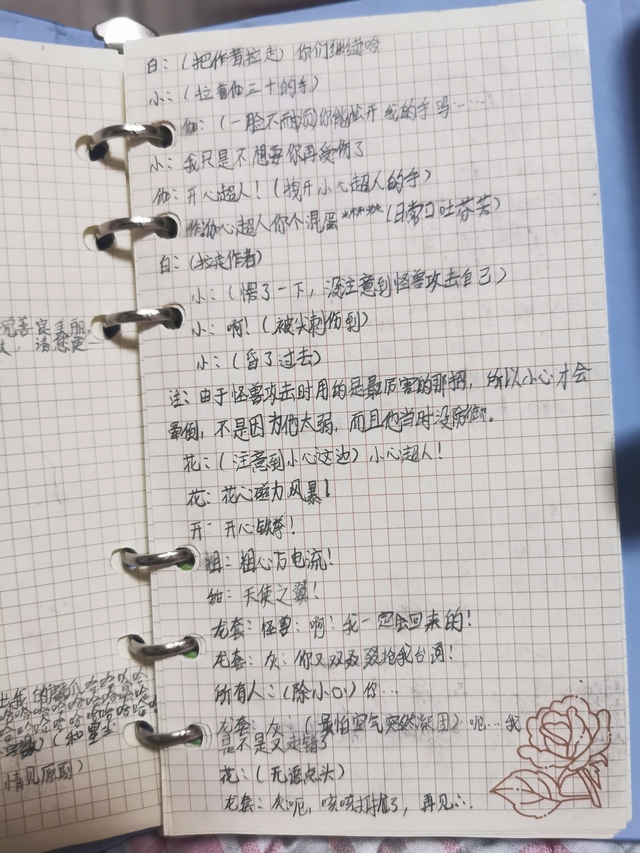 白:(把作者拉走)你们继续哈
小:(拉着伽三十的手)
伽:(一脸不耐烦)你能松开我的手吗……
小:我只是不想要你再受伤了
伽:开心超人!(拽开小心超人的手)
心超人你个混蛋****(日常口吐芬芳)
白:(拉走作者)
小:(愣了一下,没注意到怪兽攻击自己)
小:啊!(被尖刺伤到)
小:(昏了过去)
注:由于怪兽攻击时用的是最厉害的那招,所以小心才会
晕倒,不是因为他太弱,而且他当时没防御。
花:(注意到小心这边)小心超人!
花:花心磁力风暴!
开:开心铁拳!
粗:粗心万电流!
甜:天使之翼!
龙套:怪兽:啊!我一定会回来的!
龙套:灰:你又双叒叕抢我台词!
所有人:(除小心)你…
龙套:灰:(最怕空气突然凝固)呃…我
是不是又走错了
花:(无语点头)
龙套:灰:呃,咳咳打扰了,再见…
觉善良美丽
请您宽
哈哈哈哈哈
情见原剧)